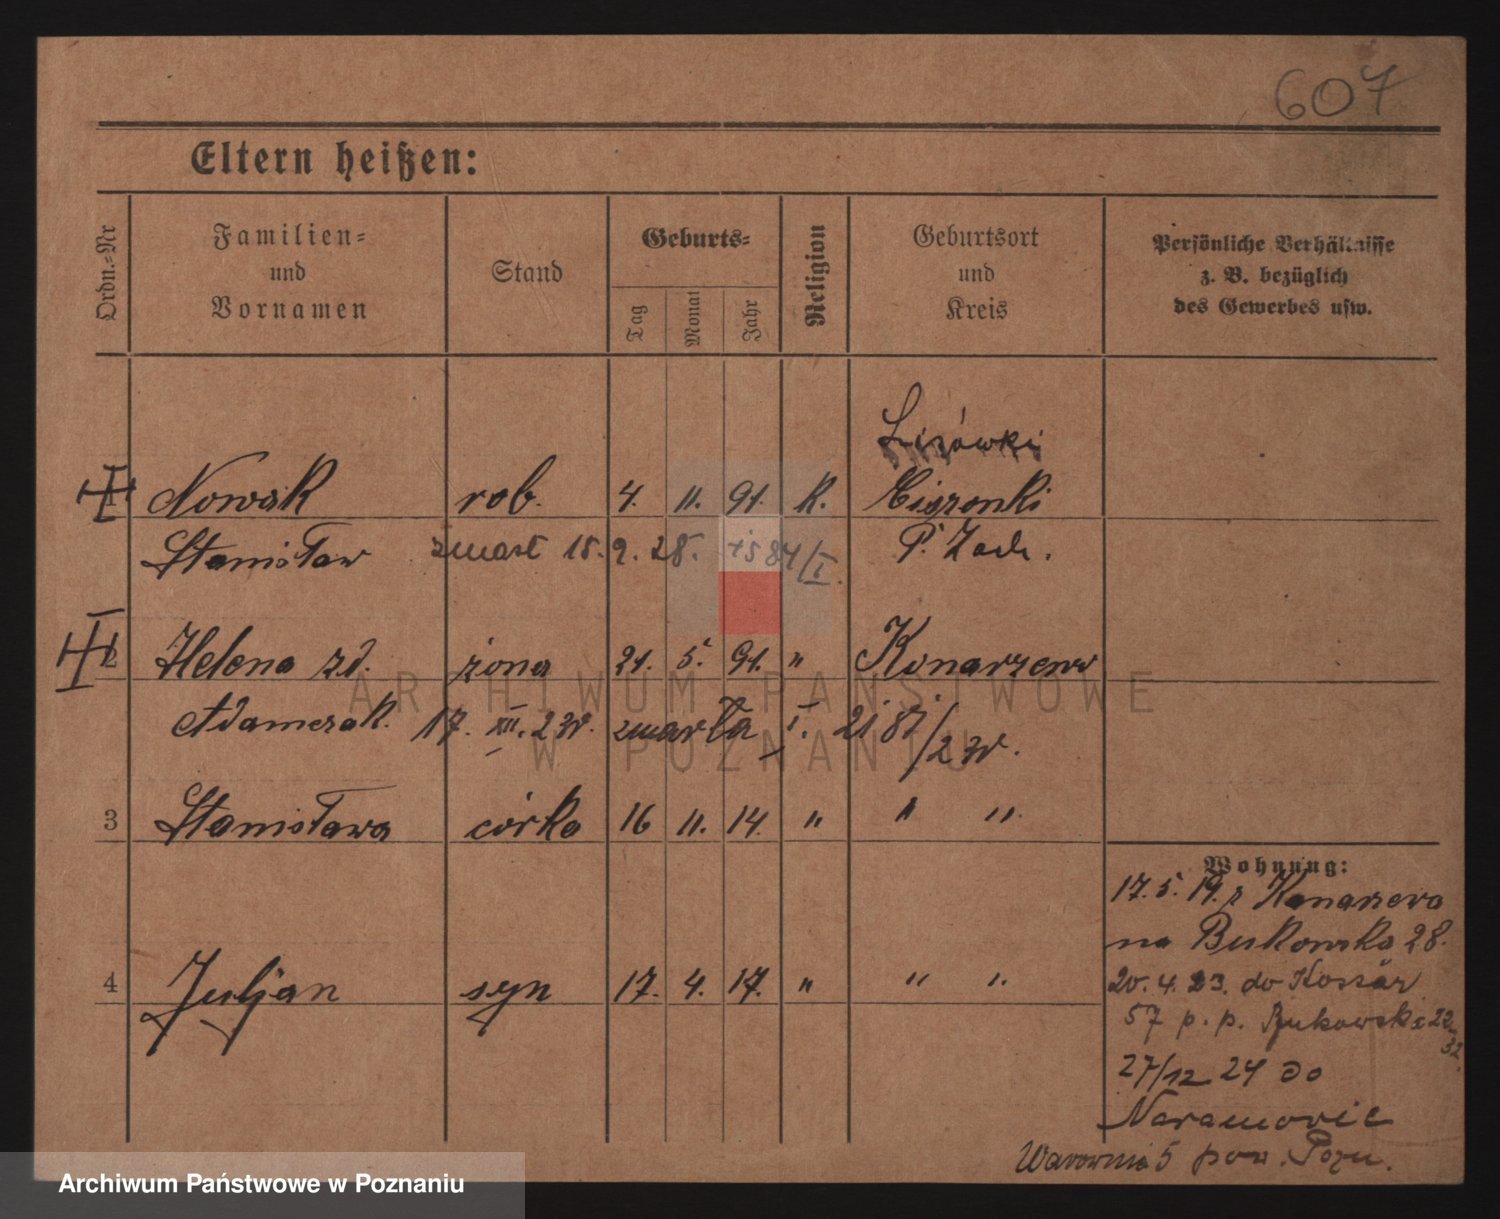 607
Eltern heißen:
Ordn.-Nr
Familien-
und
Vornamen
Stand
Geburts-
Tag
Monat
Jahr
Religion
Geburtsort
und
Kreis
Persönliche Verhältnisse
z. B. bezüglich
des Gewerbes usw.
Nowak rob. 4. 11. 91. K.
Stanisław zmarł 15. 9. 28.
2 Helena zd. żona 21. 5. 91. " Konarzewo
Adamczak. 17. XII. 230. zmarła I. 2181/230.
3 Stanisława córka 16 11. 14. " " "
4 Juljan syn 17. 4. 17. " " "
Wohnung:
17. 5. 19. z Konarzewa
na Bukowska 28.
20. 4. 23. do Koszar
57 p. p. Bukowska
27/12 24 do
Naramowic
Warownia 5 pow. Pozn.
ARCHIWUM PAŃSTWOWE
W POZNANIU
Archiwum Państwowe w Poznaniu